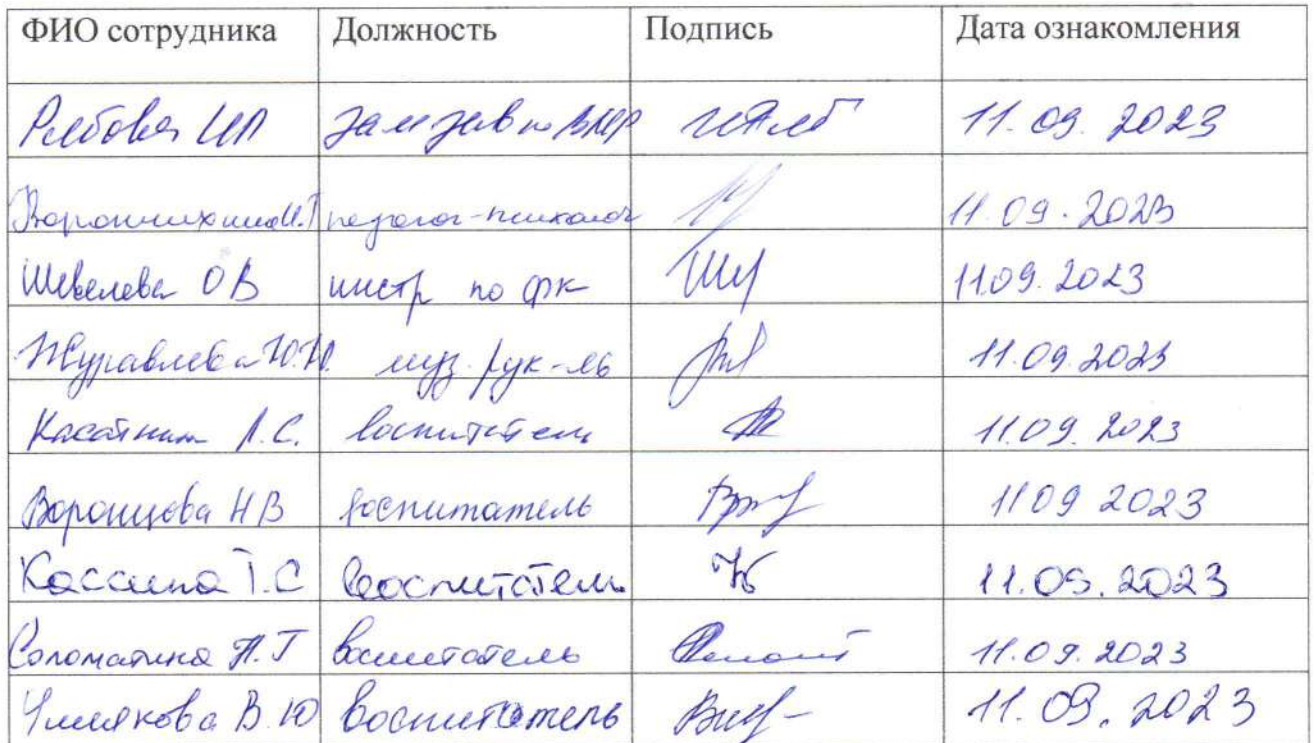 ФИО сотрудника Должность Подпись Дата ознакомления
ИП зам зав по ВМР 11.09.2023
педагог-психолог 11.09.2023
Шевелева ОВ инстр по фк 11.09.2023
Журавлева Ю.Ю. муз. рук-ль 11.09.2023
Касаткина Л.С. воспитатель 11.09.2023
Воронцова НВ воспитатель 11 09 2023
Кассина Т.С воспитатель 11.09.2023
Соломатина Л.Г воспитатель 11.09.2023
В.Ю воспитатель 11.09.2023